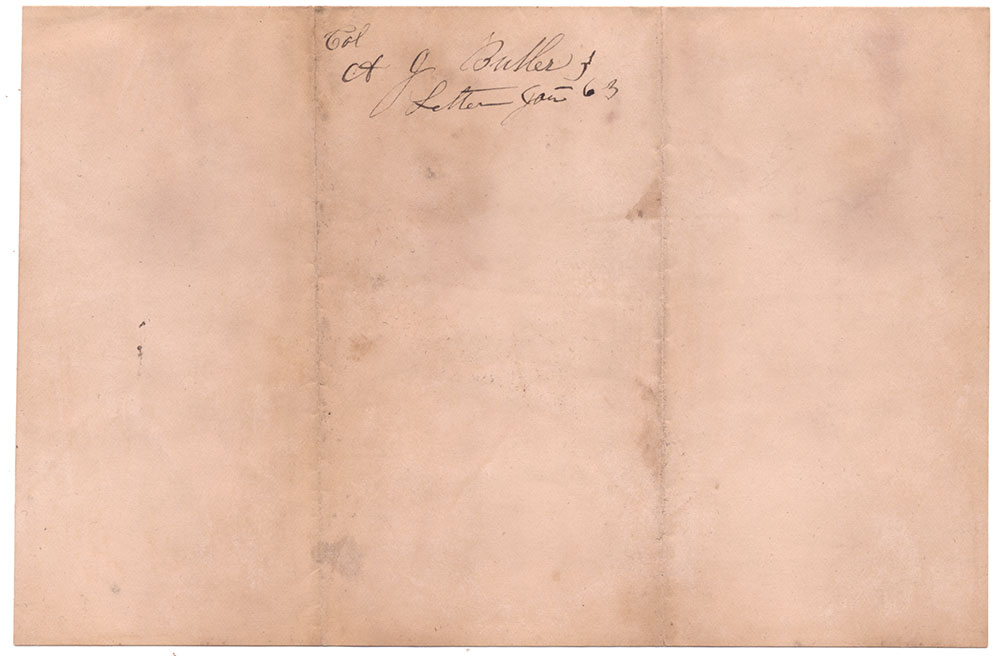 Col
A J Butler
Letter Jan 63